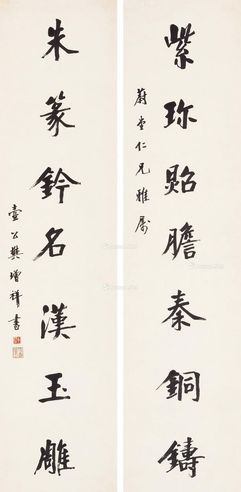 紫珎照膽秦銅鑄
蔚堂仁兄雅屬
朱篆鈐名漢玉雕
壹公樊增祥書